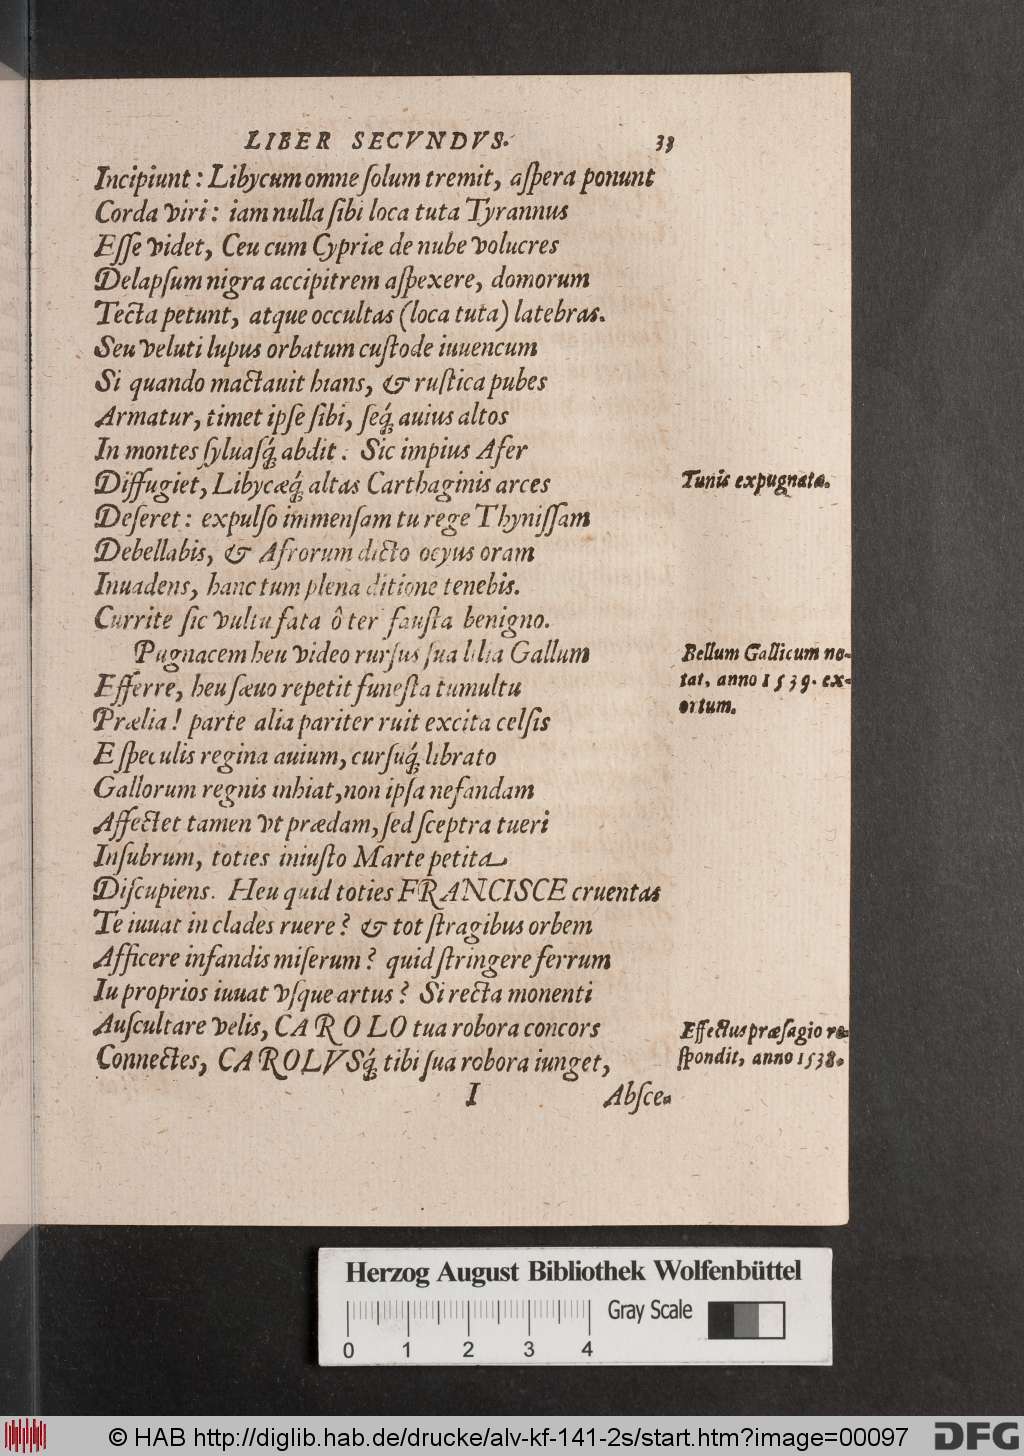 LIBER SECVNDVS. 33
Incipiunt : Libycum omne ſolum tremit, aſpera ponunt
Corda viri : iam nulla ſibi loca tuta Tyrannus
Eſſe videt, Ceu cum Cypriæ de nube volucres
Delapſum nigra accipitrem aſpexere, domorum
Tecta petunt, atque occultas (loca tuta) latebras.
Seu veluti lupus orbatum cuſtode iuuencum
Si quando mactauit hians, & ruſtica pubes
Armatur, timet ipſe ſibi, ſeq́; auius altos
In montes ſyluaſq́; abdit. Sic impius Afer
Diffugiet, Libycæq́; altas Carthaginis arces
Tunis expugnata.
Deſeret : expulſo immenſam tu rege Thyniſſam
Debellabis, & Afrorum dicto ocyus oram
Inuadens, hanc tum plena ditione tenebis.
Currite ſic vultu fata ô ter fauſta benigno.
Pugnacem heu video rurſus ſua lilia Gallum
Efferre, heu ſæuo repetit funeſta tumultu
Prælia ! parte alia pariter ruit excita celſis
E ſpeculis regina auium, curſuq́; librato
Gallorum regnis inhiat, non ipſa nefandam
Affectet tamen vt prædam, ſed ſceptra tueri
Inſubrum, toties iniuſto Marte petita
Diſcupiens. Heu quid toties FRANCISCE cruentas
Te iuuat in clades ruere ? & tot ſtragibus orbem
Afficere infandis miſerum ? quid ſtringere ferrum
In proprios iuuat vſque artus ? Si recta monenti
Auſcultare velis, CAROLO tua robora concors
Connectes, CAROLVSq́; tibi ſua robora iunget,
Bellum Gallicum no-
tat, anno 1539. ex-
ortum.
Effectus præſagio re-
ſpondit, anno 1538.
I Abſce-
Herzog August Bibliothek Wolfenbüttel
Gray Scale
0 1 2 3 4
© HAB http://diglib.hab.de/drucke/alv-kf-141-2s/start.htm?image=00097
DFG